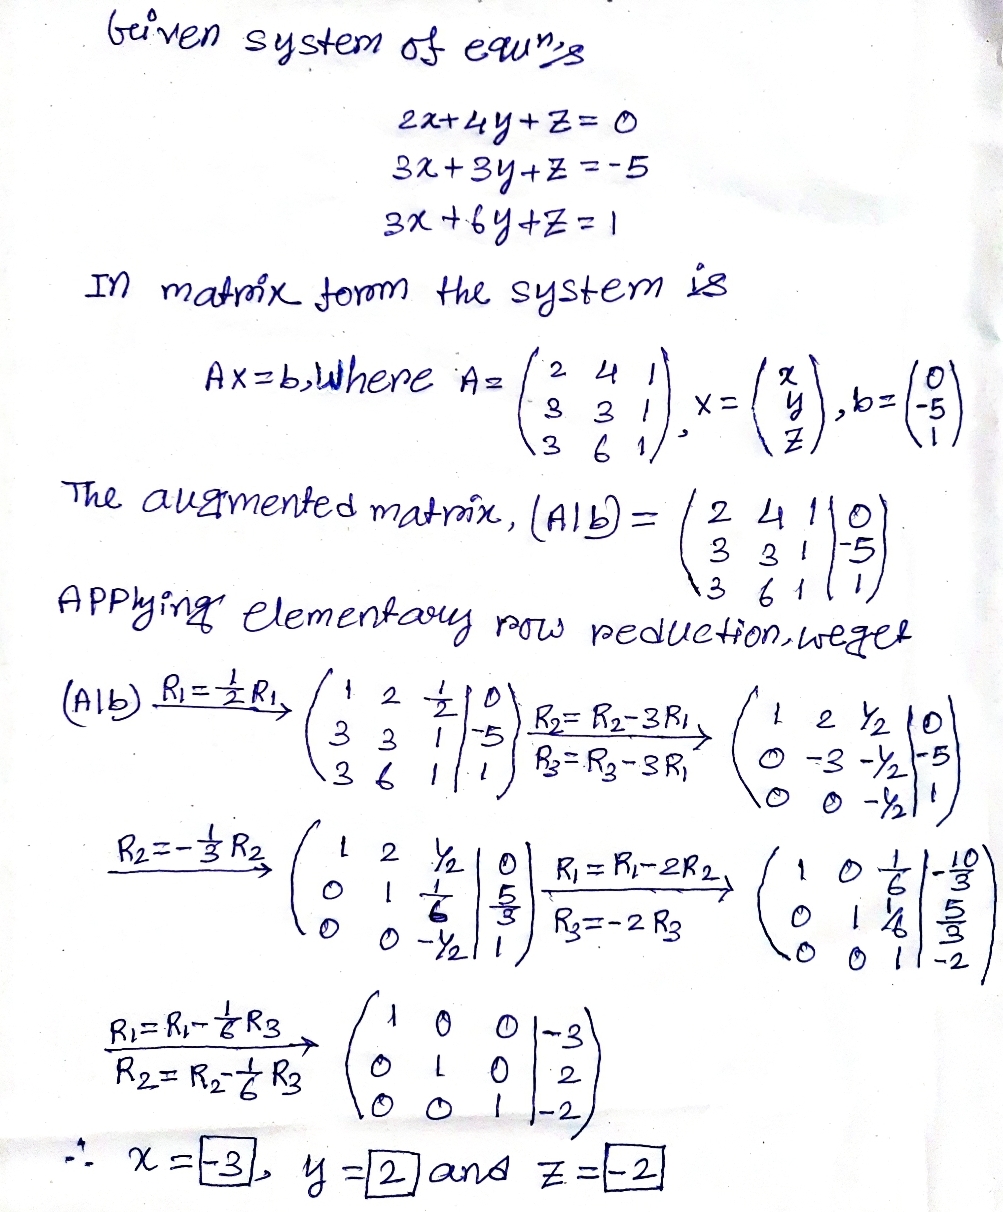 Given system of equn's
2x+4y+z=0
3x+3y+z=-5
3x+6y+z=1
In matrix form the system is
Ax=b, Where A= (2 4 1; 3 3 1; 3 6 1), x= (x; y; z), b= (0; -5; 1)
The augmented matrix, (A|b) = (2 4 1 | 0; 3 3 1 | -5; 3 6 1 | 1)
Applying elementary row reduction, we get
(A|b) R₁=½R₁→ (1 2 1/2 | 0; 3 3 1 | -5; 3 6 1 | 1) R₂=R₂-3R₁, R₃=R₃-3R₁→ (1 2 1/2 | 0; 0 -3 -1/2 | -5; 0 0 -1/2 | 1)
R₂=-1/3 R₂→ (1 2 1/2 | 0; 0 1 1/6 | 5/3; 0 0 -1/2 | 1) R₁=R₁-2R₂, R₃=-2R₃→ (1 0 1/6 | -10/3; 0 1 1/6 | 5/3; 0 0 1 | -2)
R₁=R₁-1/6 R₃, R₂=R₂-1/6 R₃→ (1 0 0 | -3; 0 1 0 | 2; 0 0 1 | -2)
∴ x = -3, y = 2 and z = -2